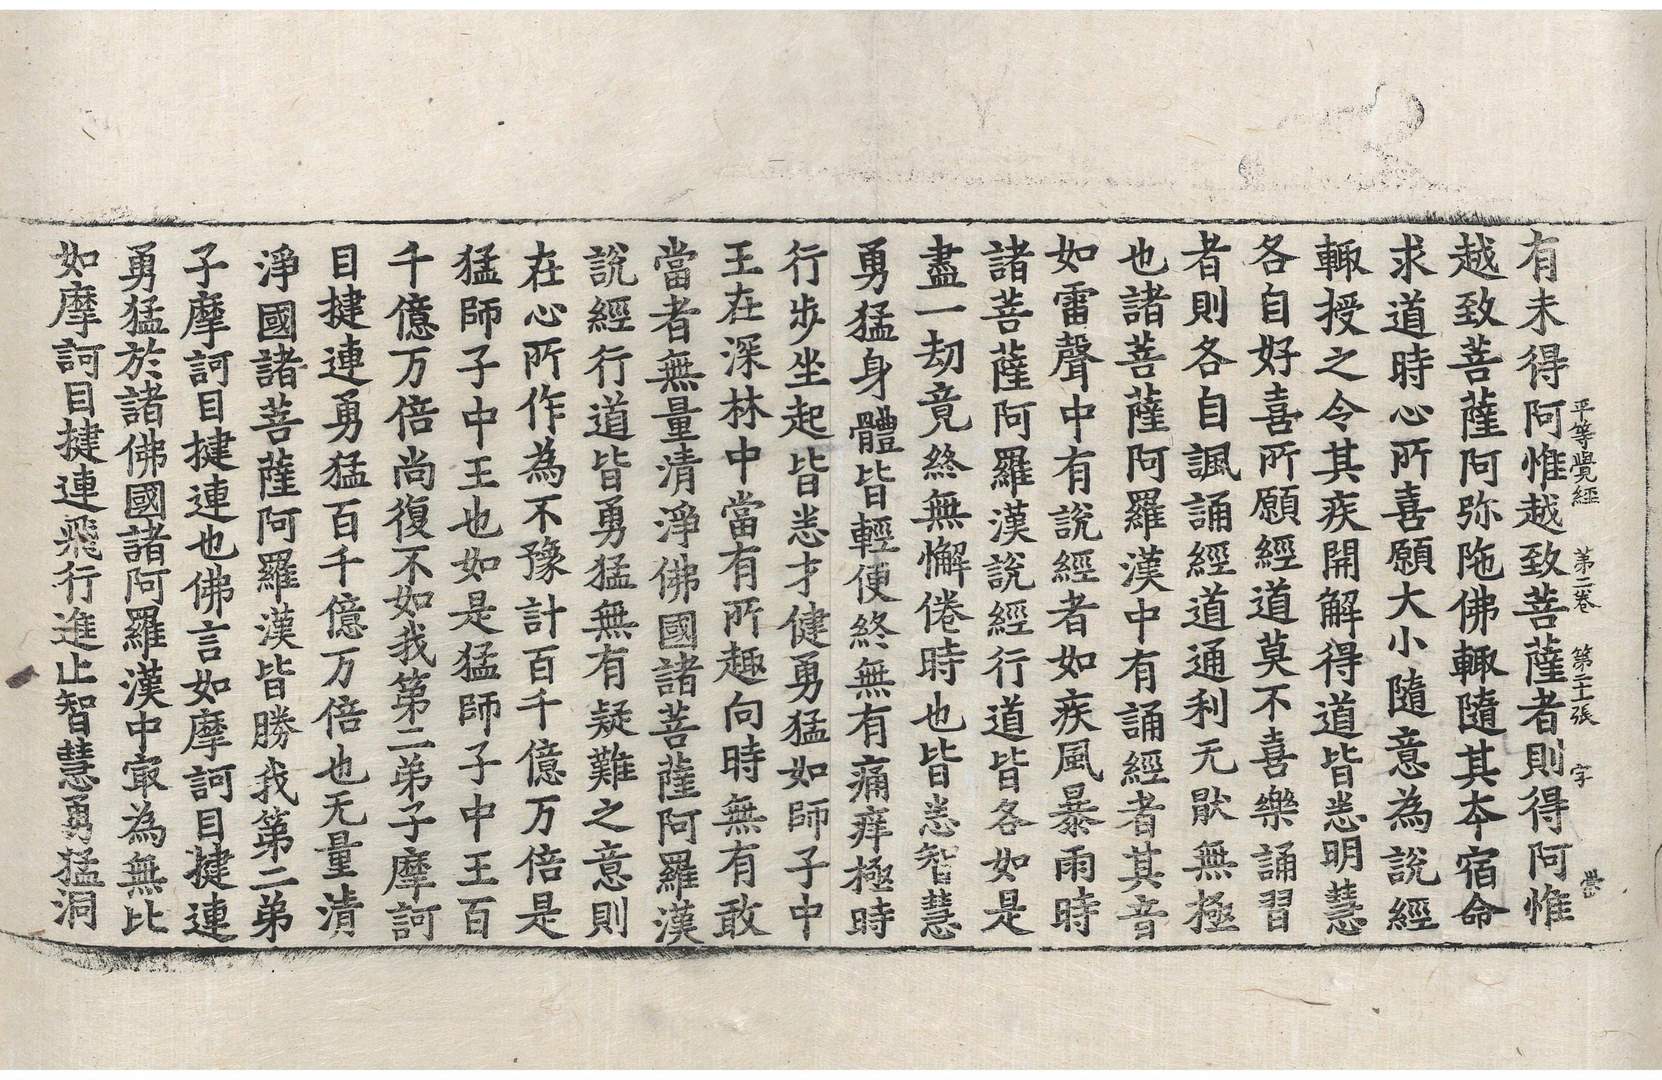 平等覺經　第二卷　第二十一張　字
有未得阿惟越致菩薩者則得阿惟
越致菩薩阿弥陁佛輙隨其本宿命
求道時心所喜願大小隨意為說經
輙授之令其疾開解得道皆悉明慧
各自好喜所願經道莫不喜樂誦習
者則各自諷誦經道通利无猒無極
也諸菩薩阿羅漢中有誦經者其音
如雷聲中有說經者如疾風暴雨時
諸菩薩阿羅漢說經行道皆各如是
盡一劫竟終無懈倦時也皆悉智慧
勇猛身體皆輕便終無有痛痒極時
行步坐起皆悉才健勇猛如師子中
王在深林中當有所趣向時無有敢
當者無量清淨佛國諸菩薩阿羅漢
說經行道皆勇猛無有疑難之意則
在心所作為不豫計百千億万倍是
猛師子中王也如是猛師子中王百
千億万倍尚復不如我第二弟子摩訶
目揵連勇猛百千億万倍也无量清
淨國諸菩薩阿羅漢皆勝我第二弟
子摩訶目揵連也佛言如摩訶目揵連
勇猛於諸佛國諸阿羅漢中㝡為無比
如摩訶目揵連飛行進止智慧勇猛洞